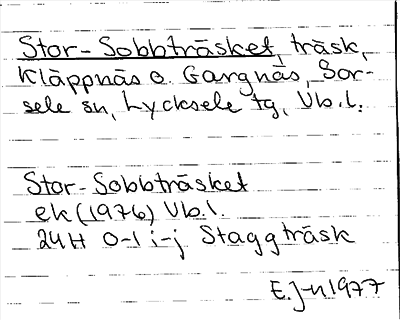 Stor-Sobbträsket, träsk,
Kläppnäs o. Gargnäs, Sor-
sele sn, Lycksele tg, Vb.l.
Stor-Sobbträsket
ek (1976) Vb.l.
24H 0-1 i-j Staggträsk
E.J-n 1977